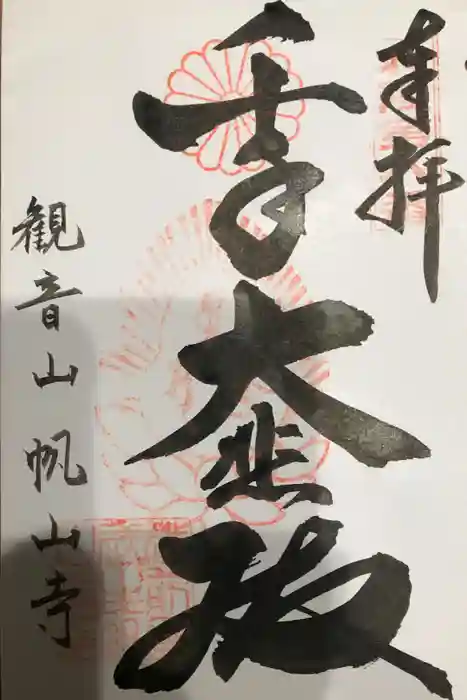 奉拝
千手大悲殿
観音山帆山寺